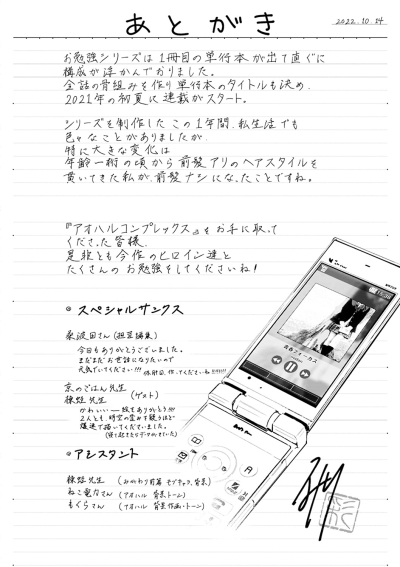 あとがき
2022.10.24
お勉強シリーズは1冊目の単行本が出て直ぐに
構成が浮かんでおりました。
全話の骨組みを作り単行本のタイトルも決め、
2021年の初夏に連載がスタート。
シリーズを制作したこの1年間、私生活でも
色々なことがありましたが
特に大きな変化は
年齢一桁の頃から前髪アリのヘアスタイルを
貫いてきた私が、前髪ナシになったことですね。
『アオハルコンプレックス』をお手に取って
くださった皆様、
是非とも今作のヒロイン達と
たくさんのお勉強をしてくださいね!
◎スペシャルサンクス
桑波田さん(担当編集)
今日もありがとうございました。
まだまだお世話になりたいので
元気でいてください!!!
京のごはん先生
榛姫先生
(ゲスト)
かわいい一枚をありがとう!!!
2人とも、時空の歪みで競うほど
爆速で描いてくださいました。
◎アシスタント
榛姫先生 (みがわり前篇 モブキャラ、背景)
ねこ竜なさん (アオハル 背景トーン)
もぐらさん (アオハル 背景作画・トーン)
青春フォーカス